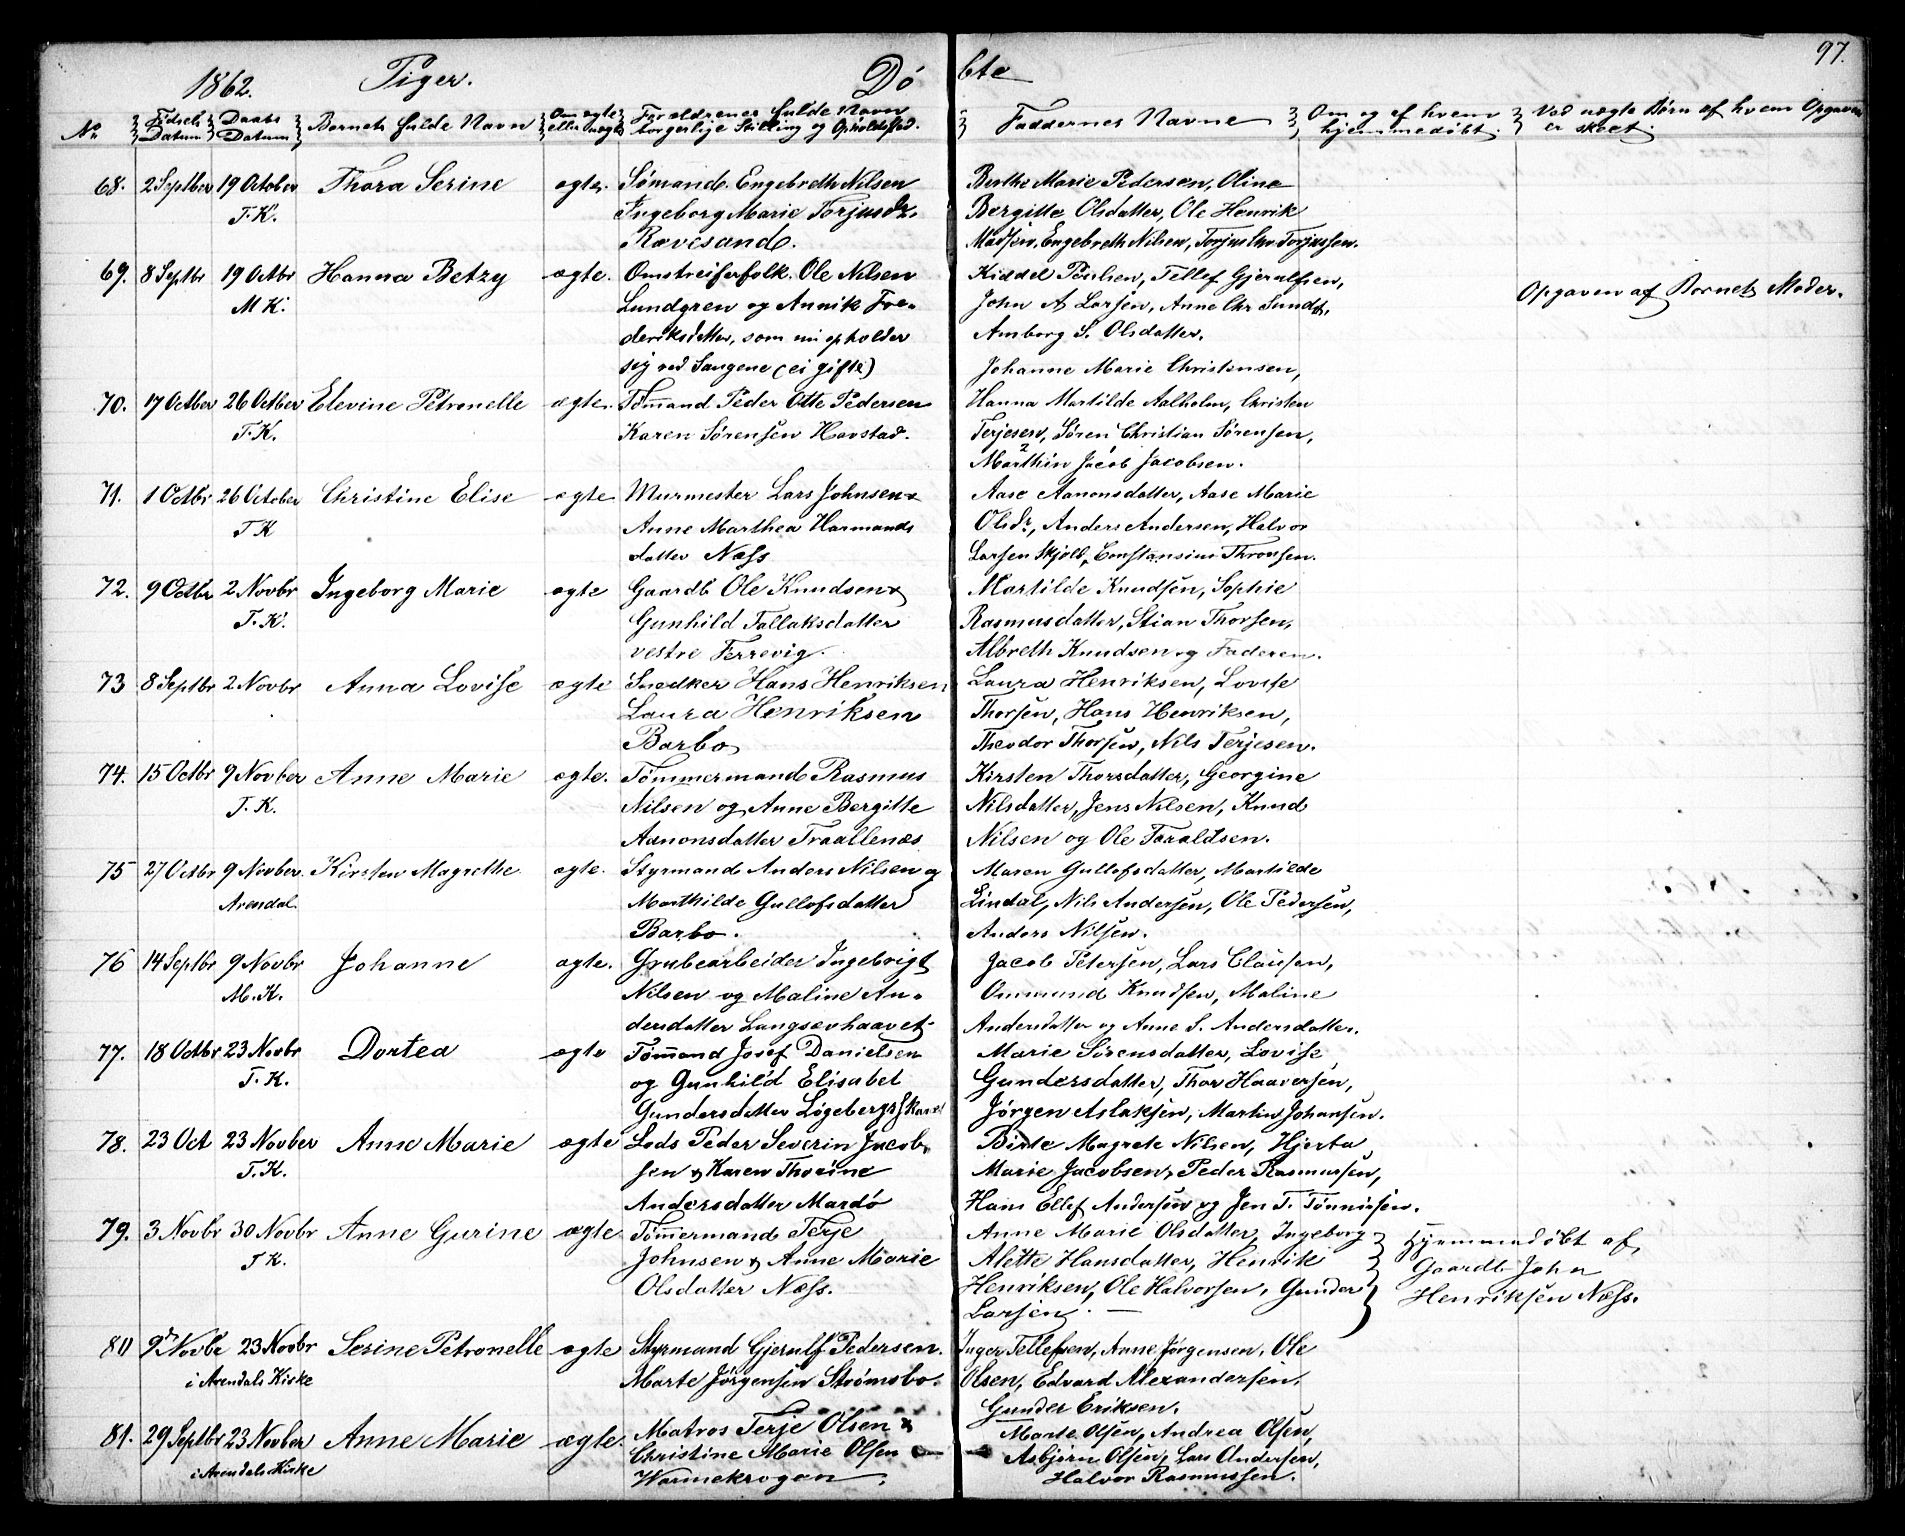 1862. Piger. Döbte 97.
No Födsels Datum Daabs Datum Barnets fulde Navn Om ægte eller uægte Forældrenes fulde Navn borgerlige Stilling og Opholdssted. Faddernes Navne Om og af hvem hjemmedöbt. Ved uægte Börn af hvem Opgaven er skeet.
68. 2 Septber 19 October Thora Serine ægte. Sömand Engebreth Nilsen Berthe Marie Pedersen, Oline
T. K. Ingeborg Marie Torjusdr. Bergitte Olsdatter, Ole Henrik
Rævesand. Madsen, Engebreth Nilsen, Torjus Chr Torjussen.
69. 8 Septbr 19 Octbr Hanna Betzy ægte. Omstreiferfolk Ole Nilsen Kiddel Poulsen, Tellef Gjerulfsen,
M K. Lundgren og Annik Fre- John A Larsen, Anne Chr Sundt, Opgaven af Barnets Moder.
deriksdatter, som nu opholder Amborg S. Olsdatter.
sig ved Langene (ei gifte) Johanne Marie Christensen,
70. 17 Octber 26 Octber Elevine Petronelle ægte. Tömand Peder Otte Pedersen Hanna Martilde Aalholm, Christen
T. K. Karen Sörensen Havstad. Terjesen, Sören Christian Sörensen,
Marthin Jacob Jacobsen.
71. 1 Octbr 26 October Christine Elise ægte Murmester Lars Johnsen & Aase Aanonsdatter, Aase Marie
T K Anne Marthea Harmands Olsdr, Anders Andersen, Halvor
datter Næss Larsen Skjold, Constansius Thronsen.
72. 9 Octbr 2 Novbr Ingeborg Marie ægte Gaardb Ole Knudsen & Martilde Knudsen, Sophie
T. K. Gunhild Tallaksdatter Rasmusdatter, Stian Thorsen,
vestre Terrevig. Albreth Knudsen og Faderen.
73 8 Septbr 2 Novbr Anna Lovise ægte Snedker Hans Henriksen Laura Henriksen, Lovise
Laura Henriksen Thorsen, Hans Henriksen,
Barbo Theodor Thorsen, Nils Terjesen.
74. 15 Octbr 9 Novber Anne Marie ægte. Tömmermand Rasmus Kirsten Thorsdatter, Georgine
T. K. Nilsen og Anne Bergitte Nilsdatter, Jens Nilsen, Knud
Aanonsdatter Traallenæs Nilsen og Ole Taraldsen.
75 27 Octbr 9 Novber. Kirsten Magrethe ægte. Styrmand Anders Nilsen og Maren Gullofsdatter, Martilde
Arendal Marthilde Gullofsdatter Lindal, Nils Andersen, Ole Pedersen,
Barbo. Anders Nilsen.
76 14 Septbr 9 Novbr Johanne ægte. Grubearbeider Ingebrigt Jacob Petersen, Lars Clausen,
M. K. Nilsen og Maline An- Ommund Knudsen, Maline
dersdatter Langsevhaavet Andersdatter og Anne S. Andersdatter.
77. 18 Octbr 23 Novbr Dortea ægte Tömand Josef Danielsen Marie Sörensdatter, Lovise
T. K. og Gunhild Elisabet Gundersdatter, Thor Haaversen,
Gundersdatter Lögebergskaret Jörgen Aslaksen, Martin Johansen.
78. 23 Oct 23 Novber Anne Marie ægte Lods Peder Severin Jacob- Birte Magrete Nilsen, Hjerta
T. K. sen & Karen Thorine Marie Jacobsen, Peder Rasmussen,
Andersdatter Mardö Hans Ellef Andersen og Jen T. Tönnissen.
79. 3 Novbr 30 Novbr Anne Gurine ægte Tömmermand Terje Anne Marie Olsdatter, Ingeborg Hjemmedöbt af
T K. Johnsen & Anne Marie Alette Hansdatter, Henrik Gaardb John
Olsdatter Næss. Henriksen, Ole Halvorsen, Gunder Henriksen Næss.
Larsen
80 9de Novbr 23 Novbr Serine Petronelle ægte Styrmand Gjerulf Pedersen. Inger Tellefsen, Anne Jörgensen, Ole
i Arendals Kirke Marte Jörgensen Strömsbo. Olsen, Edvard Alexandersen.
Gunder Eriksen.
81. 29 Septbr 23 Novber Anne Marie ægte. Matros Terje Olsen & Marte Olsen, Andrea Olsen,
i Arendals Kirke Christine Marie Olsen Asbjörn Olsen, Lars Andersen,
Warmekrogen. Halvor Rasmussen.